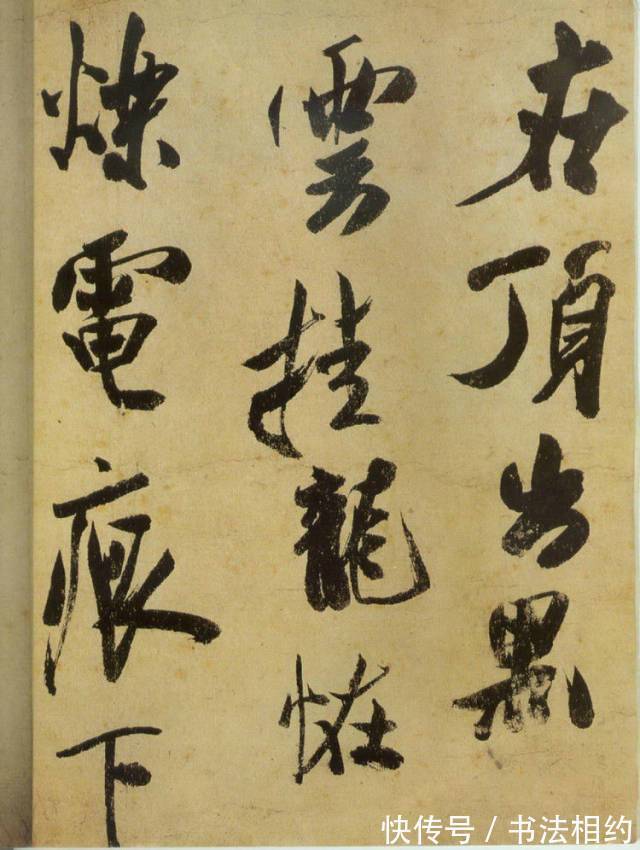 在頂出黑
雲挂龍怪
爍電痕下
快传号 / 书法相约